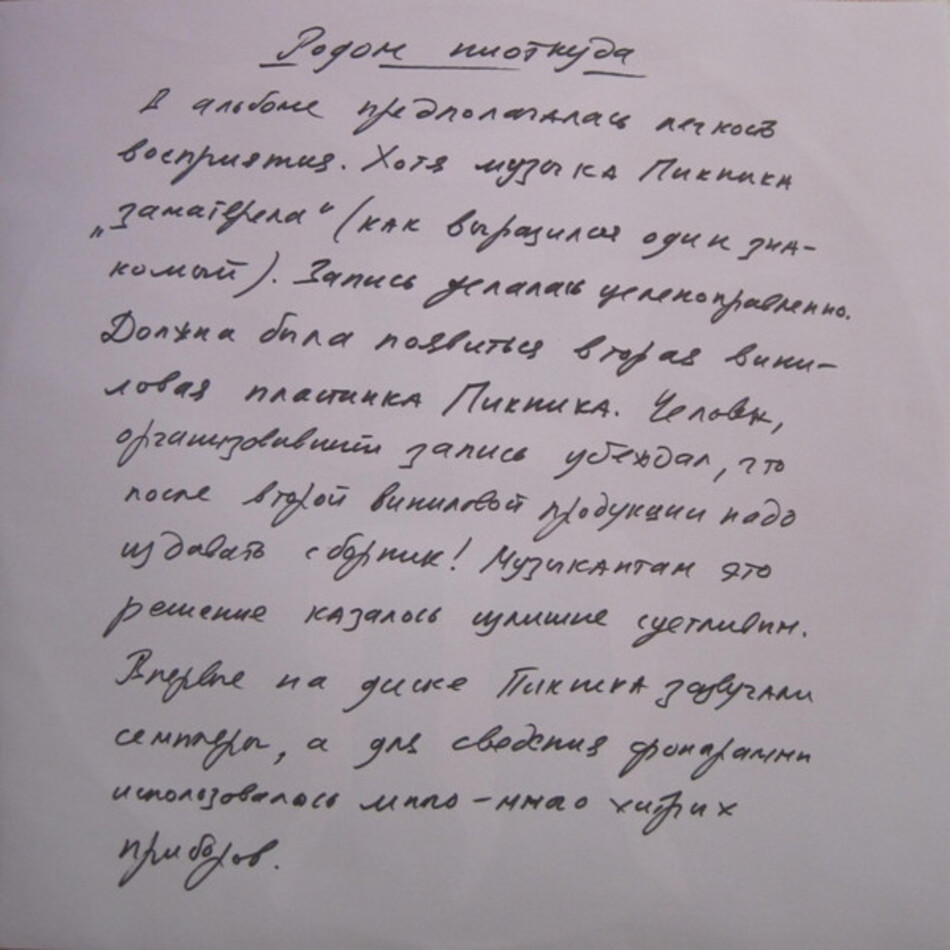 Родом ниоткуда
В альбоме предполагалась легкость
восприятия. Хотя музыка Пикника
„заматерела“ (как выразился один зна-
комый). Запись делалась целенаправленно.
Должна была появиться вторая вини-
ловая пластинка Пикника. Человек,
организовавший запись убеждал, что
после второй виниловой продукции надо
издавать сборник! Музыкантам это
решение казалось излишне суетливым.
Впервые на диске Пикника зазвучали
семплеры, а для сведения фонограммы
использовалось много-много хитрых
приборов.